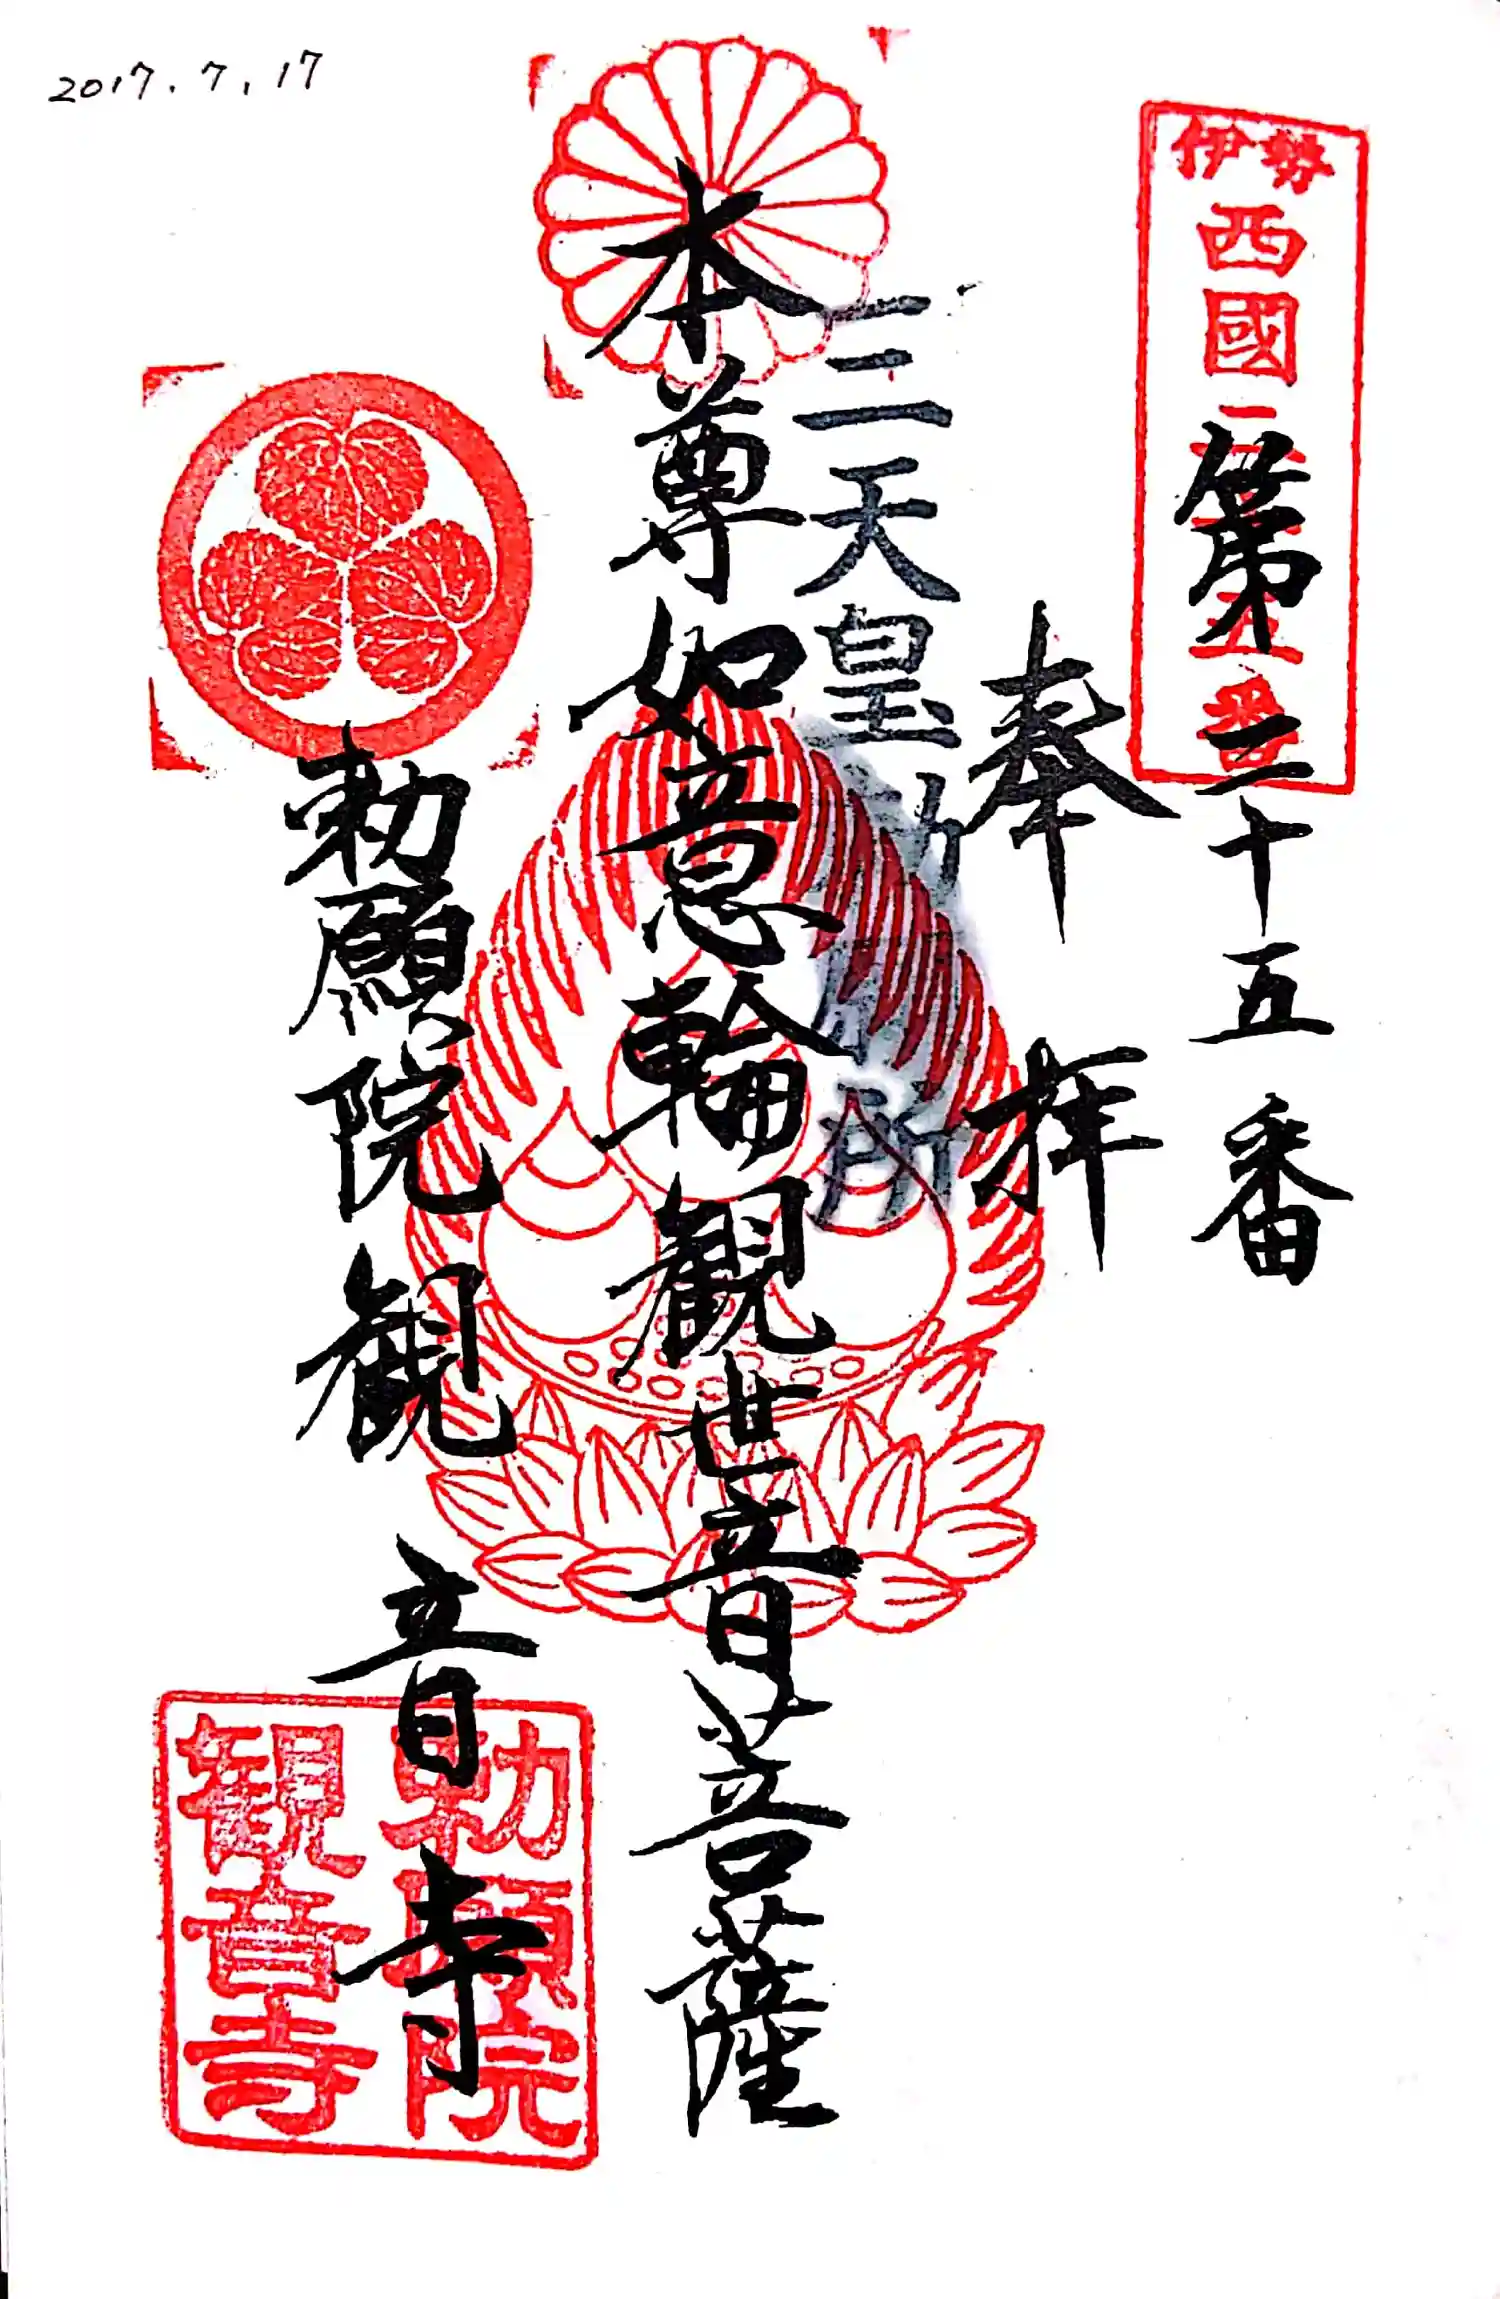 2017.7.17
伊勢
西國
二十五番
第二十五番
奉拝
三天皇勅願所
本尊如意輪観世音菩薩
勅願院観音寺
勅願院
観音寺